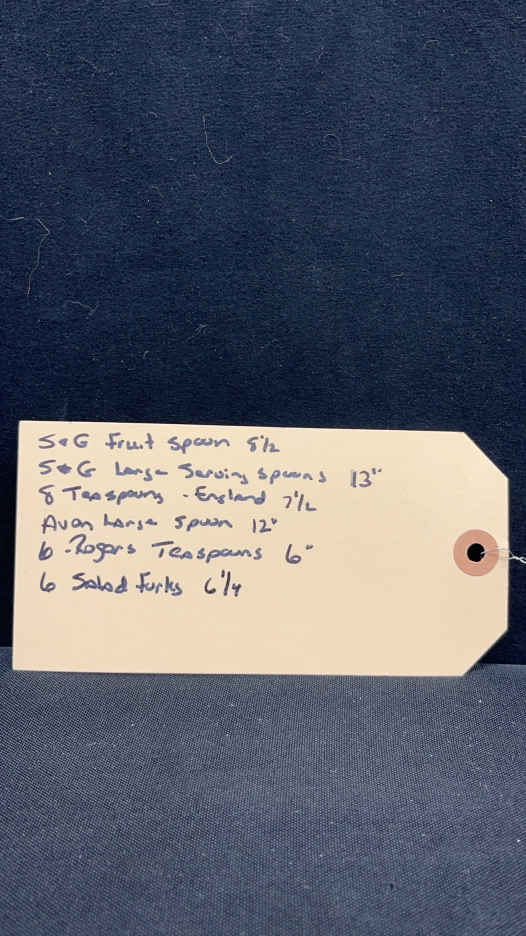 S&G Fruit Spoon 8 1/2
S&G Large Serving Spoons 13"
8 Teaspoons - England 7 1/2
Avon Large Spoon 12"
6 - Rogers Teaspoons 6"
6 Salad Forks 6 1/4